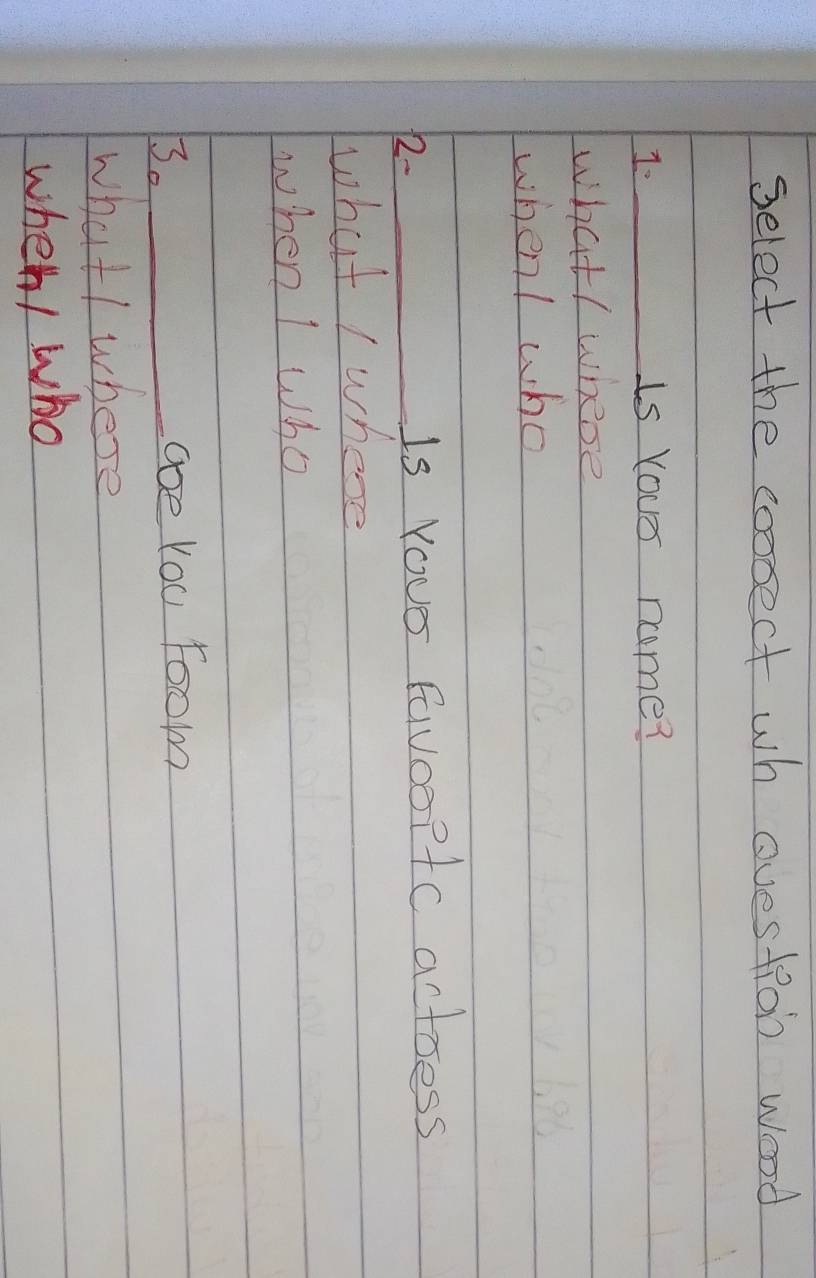 Select the correct wh question word
1. ____ is your name?
what / where
when / who
2- ____ is your favorite actress
what / where
when / who
3. ____ are you from
what / where
when / who